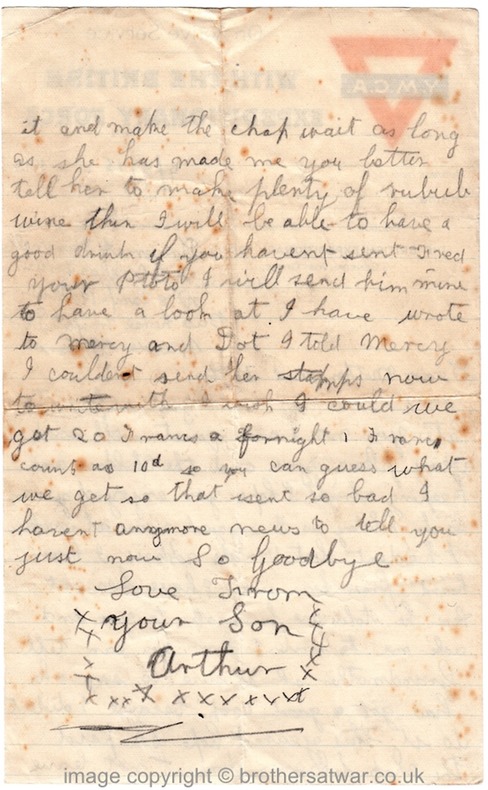 it and make the chap wait as long
as she has made me you better
tell her to make plenty of rubub
wine then I will be able to have a
good drink if you havent sent Fred
your Photo I will send him mine
to have a look at I have wrote
to Mercy and Dot I told Mercy
I couldent send her stamps now
to write with I wish I could we
got 20 Francs a fornight 1 Franc
counts as 10d so you can guess what
we get so that isent so bad I
havent anymore news to tell you
just now So Goodbye
Love From
Your Son
Arthur
x x x x x x x x x x
Y.M.C.A.
WITH THE BRITISH
image copyright © brothersatwar.co.uk